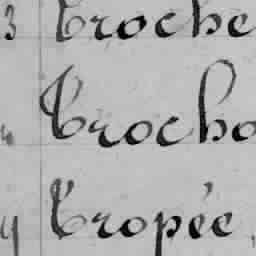 3 Troche
Trocho
y Tropée,